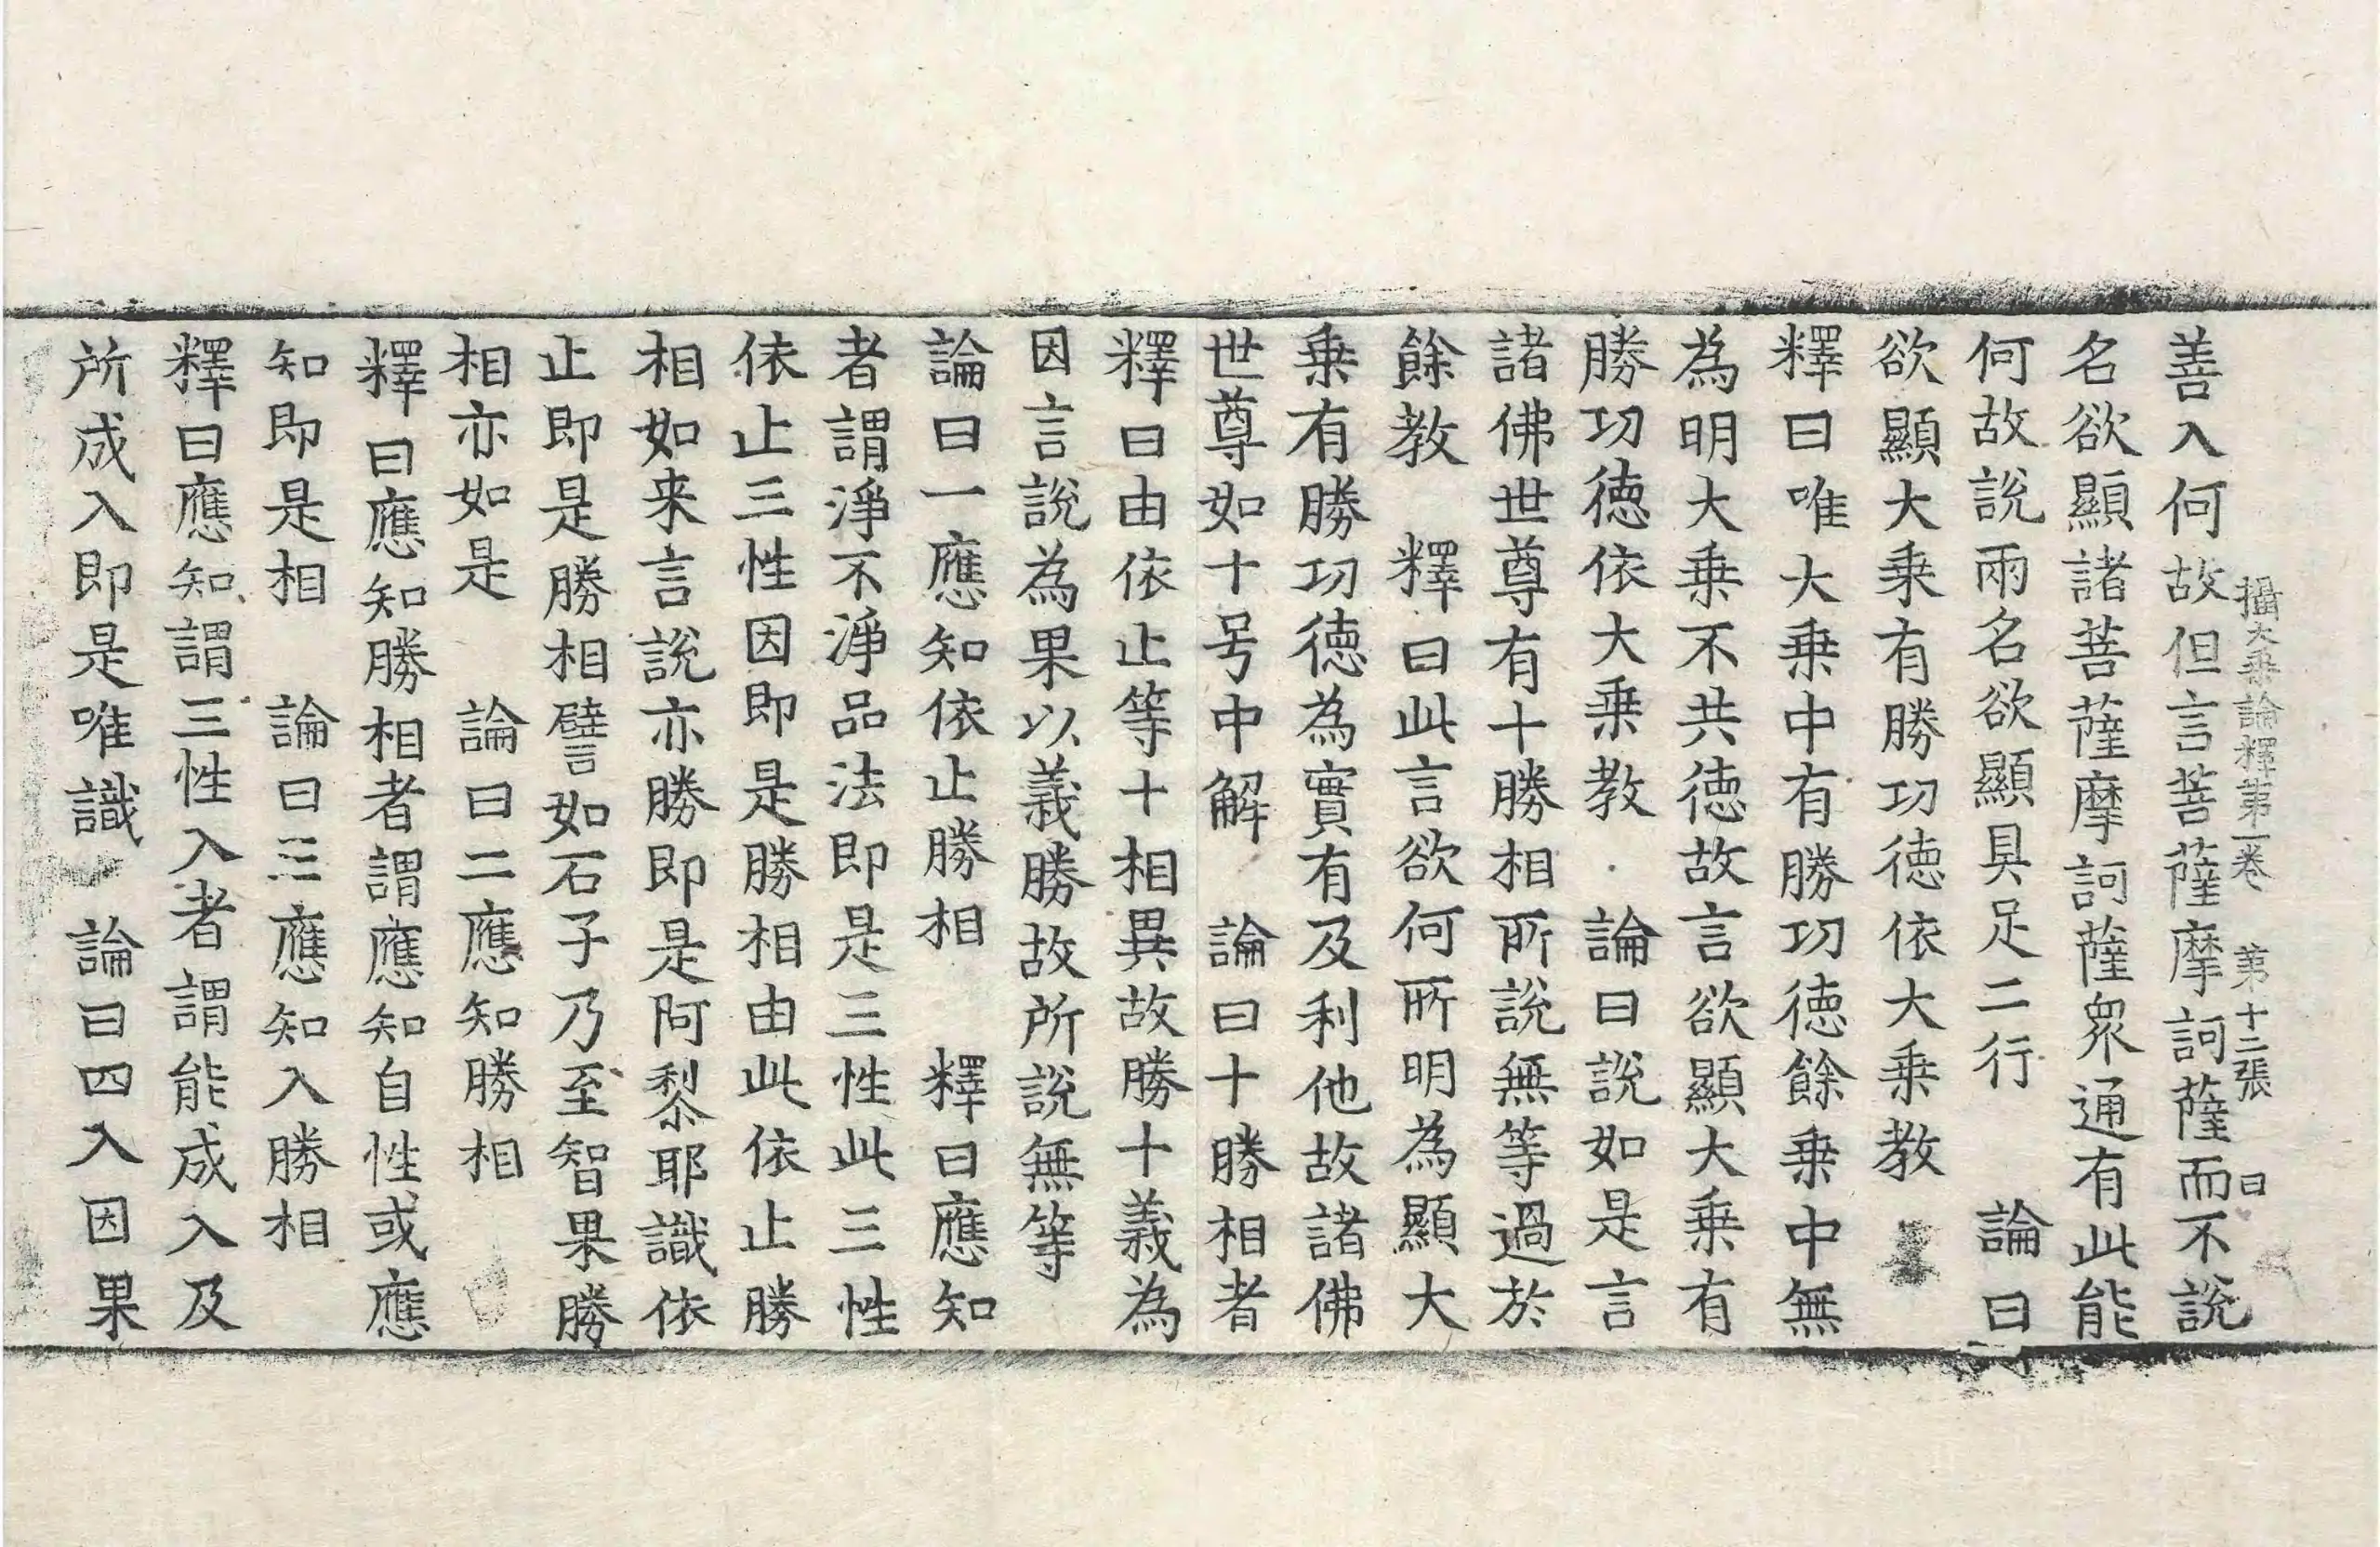 攝大乗論釋第一卷　第十二張　曰
善入何故但言菩薩摩訶薩而不説
名欲顯諸菩薩摩訶薩衆通有此能
何故説兩名欲顯具足二行　論曰
欲顯大乗有勝功徳依大乗教
釋曰唯大乗中有勝功徳餘乗中無
為明大乗不共徳故言欲顯大乗有
勝功徳依大乗教　論曰説如是言
諸佛世尊有十勝相所説無等過於
餘教　釋曰此言欲何所明為顯大
乗有勝功徳為實有及利他故諸佛
世尊如十号中解　論曰十勝相者
釋曰由依止等十相異故勝十義為
因言説為果以義勝故所説無等
論曰一應知依止勝相　釋曰應知
者謂淨不淨品法即是三性此三性
依止三性因即是勝相由此依止勝
相如来言説亦勝即是阿梨耶識依
止即是勝相譬如石子乃至智果勝
相亦如是　論曰二應知勝相
釋曰應知勝相者謂應知自性或應
知即是相　論曰三應知入勝相
釋曰應知謂三性入者謂能成入及
所成入即是唯識　論曰四入因果